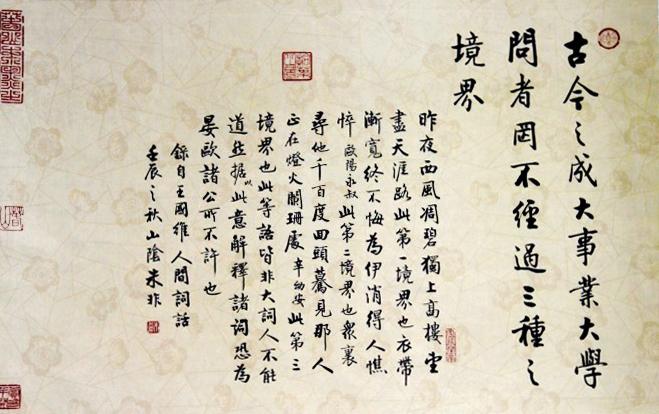 古今之成大事業大學
問者罔不經過三種之
境界
昨夜西風凋碧獨上高樓望
盡天涯路此第一境界也衣帶
漸寬終不悔為伊消得人憔
悴歐陽永叔此第二境界也眾裏
尋他千百度回頭驀見那人
正在燈火闌珊處辛幼安此第三
境界也此等語皆非大詞人不能
道然据以此意解釋諸詞恐為
晏歐諸公所不許也
錄自王國維人間詞話
壬辰之秋山陰朱非